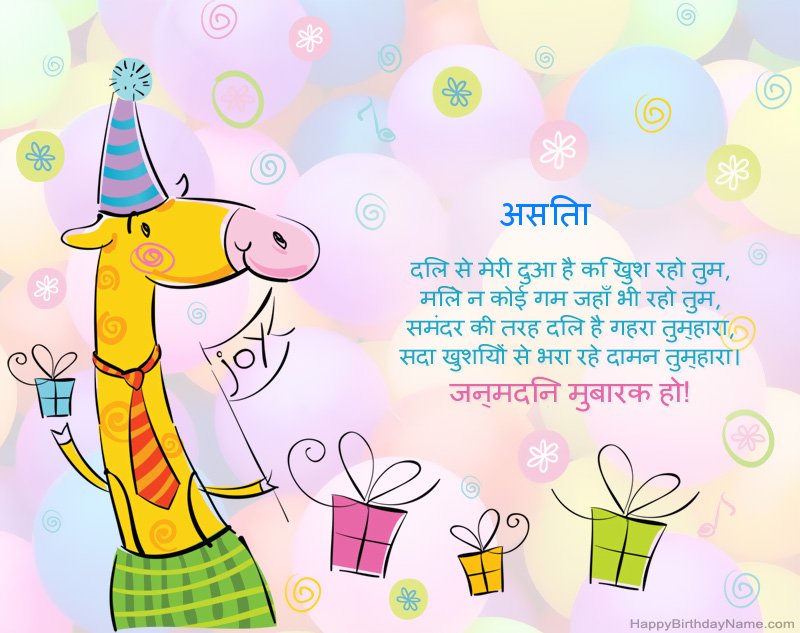 असिता
दिल से मेरी दुआ है कि खुश रहो तुम,
मिले न कोई गम जहाँ भी रहो तुम,
समंदर की तरह दिल है गहरा तुम्हारा,
सदा खुशियों से भरा रहे दामन तुम्हारा।
जन्मदिन मुबारक हो!
joy
HappyBirthdayName.com